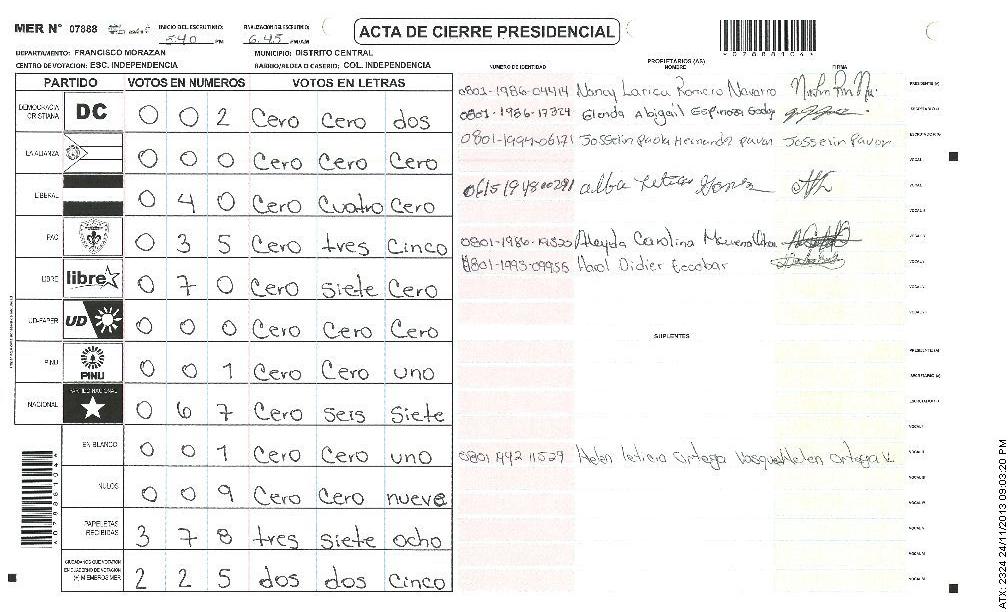 MER N° 07888 INICIO DEL ESCRUTINIO: 5:40 PM FINALIZACION DEL ESCRUTINIO: 6:45 PM/AM
ACTA DE CIERRE PRESIDENCIAL
DEPARTAMENTO: FRANCISCO MORAZAN MUNICIPIO: DISTRITO CENTRAL
CENTRO DE VOTACION: ESC. INDEPENDENCIA BARRIO/ALDEA O CASERIO: COL. INDEPENDENCIA
PARTIDO VOTOS EN NUMEROS VOTOS EN LETRAS
DEMOCRACIA CRISTIANA DC 0 0 2 Cero Cero dos
LA ALIANZA 0 0 0 Cero Cero Cero
LIBERAL 0 4 0 Cero Cuatro Cero
PAC 0 3 5 Cero tres Cinco
LIBRE libre 0 7 0 Cero siete Cero
UD-FAPER UD 0 0 0 Cero Cero Cero
PINU PINU 0 0 1 Cero Cero uno
NACIONAL PARTIDO NACIONAL 0 6 7 Cero seis siete
EN BLANCO 0 0 1 Cero Cero uno
NULOS 0 0 9 Cero Cero nueve
PAPELETAS RECIBIDAS 3 7 8 tres siete ocho
CIUDADANOS QUE VOTARON EN CUADERNO DE VOTACION (+) MIEMBROS MER 2 2 5 dos dos Cinco
PROPIETARIOS (AS)
NUMERO DE IDENTIDAD NOMBRE FIRMA
0801-1986-04414 Nancy Larica Romero Navarro
0801-1986-17324 Glenda Abigail Espinosa Godoy
0801-1994-06171 Josselin Paola Hernandz Pavon Josselin Pavon
alba
0801-1986- Aleyda Carolina
0801-1993-09956 Harol Didier Escobar
SUPLENTES
0801 1992 11529 Helen leticia Ortega Vasquez Helen Ortega V.
PRESIDENTE (A)
SECRETARIO (A)
ESCRUTADOR (A)
VOCAL I
ATX: 2324 24/11/2013 09:03:20 PM